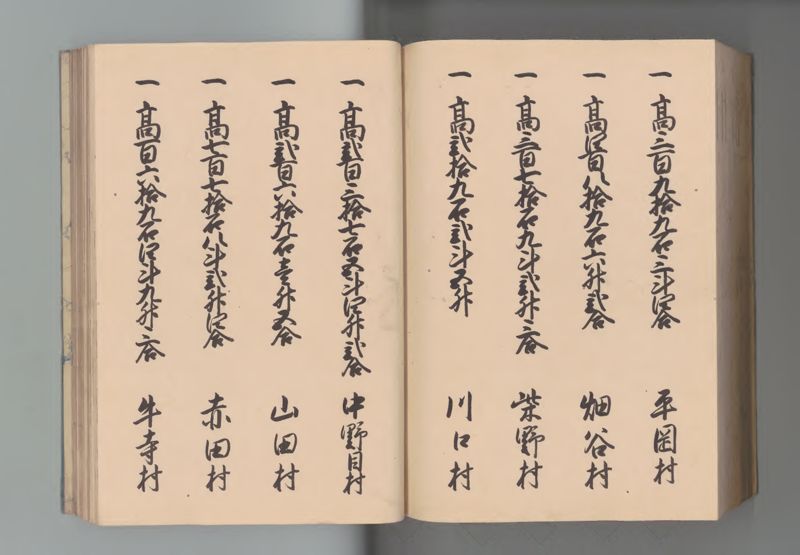 一 高三百九拾九石三斗四合 平岡村
一 高四百八拾九石六升弐合 畑谷村
一 高三百七拾石九斗弐升三合 柴野村
一 高弐拾九石弐斗五升 川口村
一 高弐百三拾七石五斗四升弐合 中野目村
一 高弐百六拾九石壱升五合 山田村
一 高七百七拾石八斗弐升四合 赤田村
一 高百六拾九石四斗九升三合 牛寺村